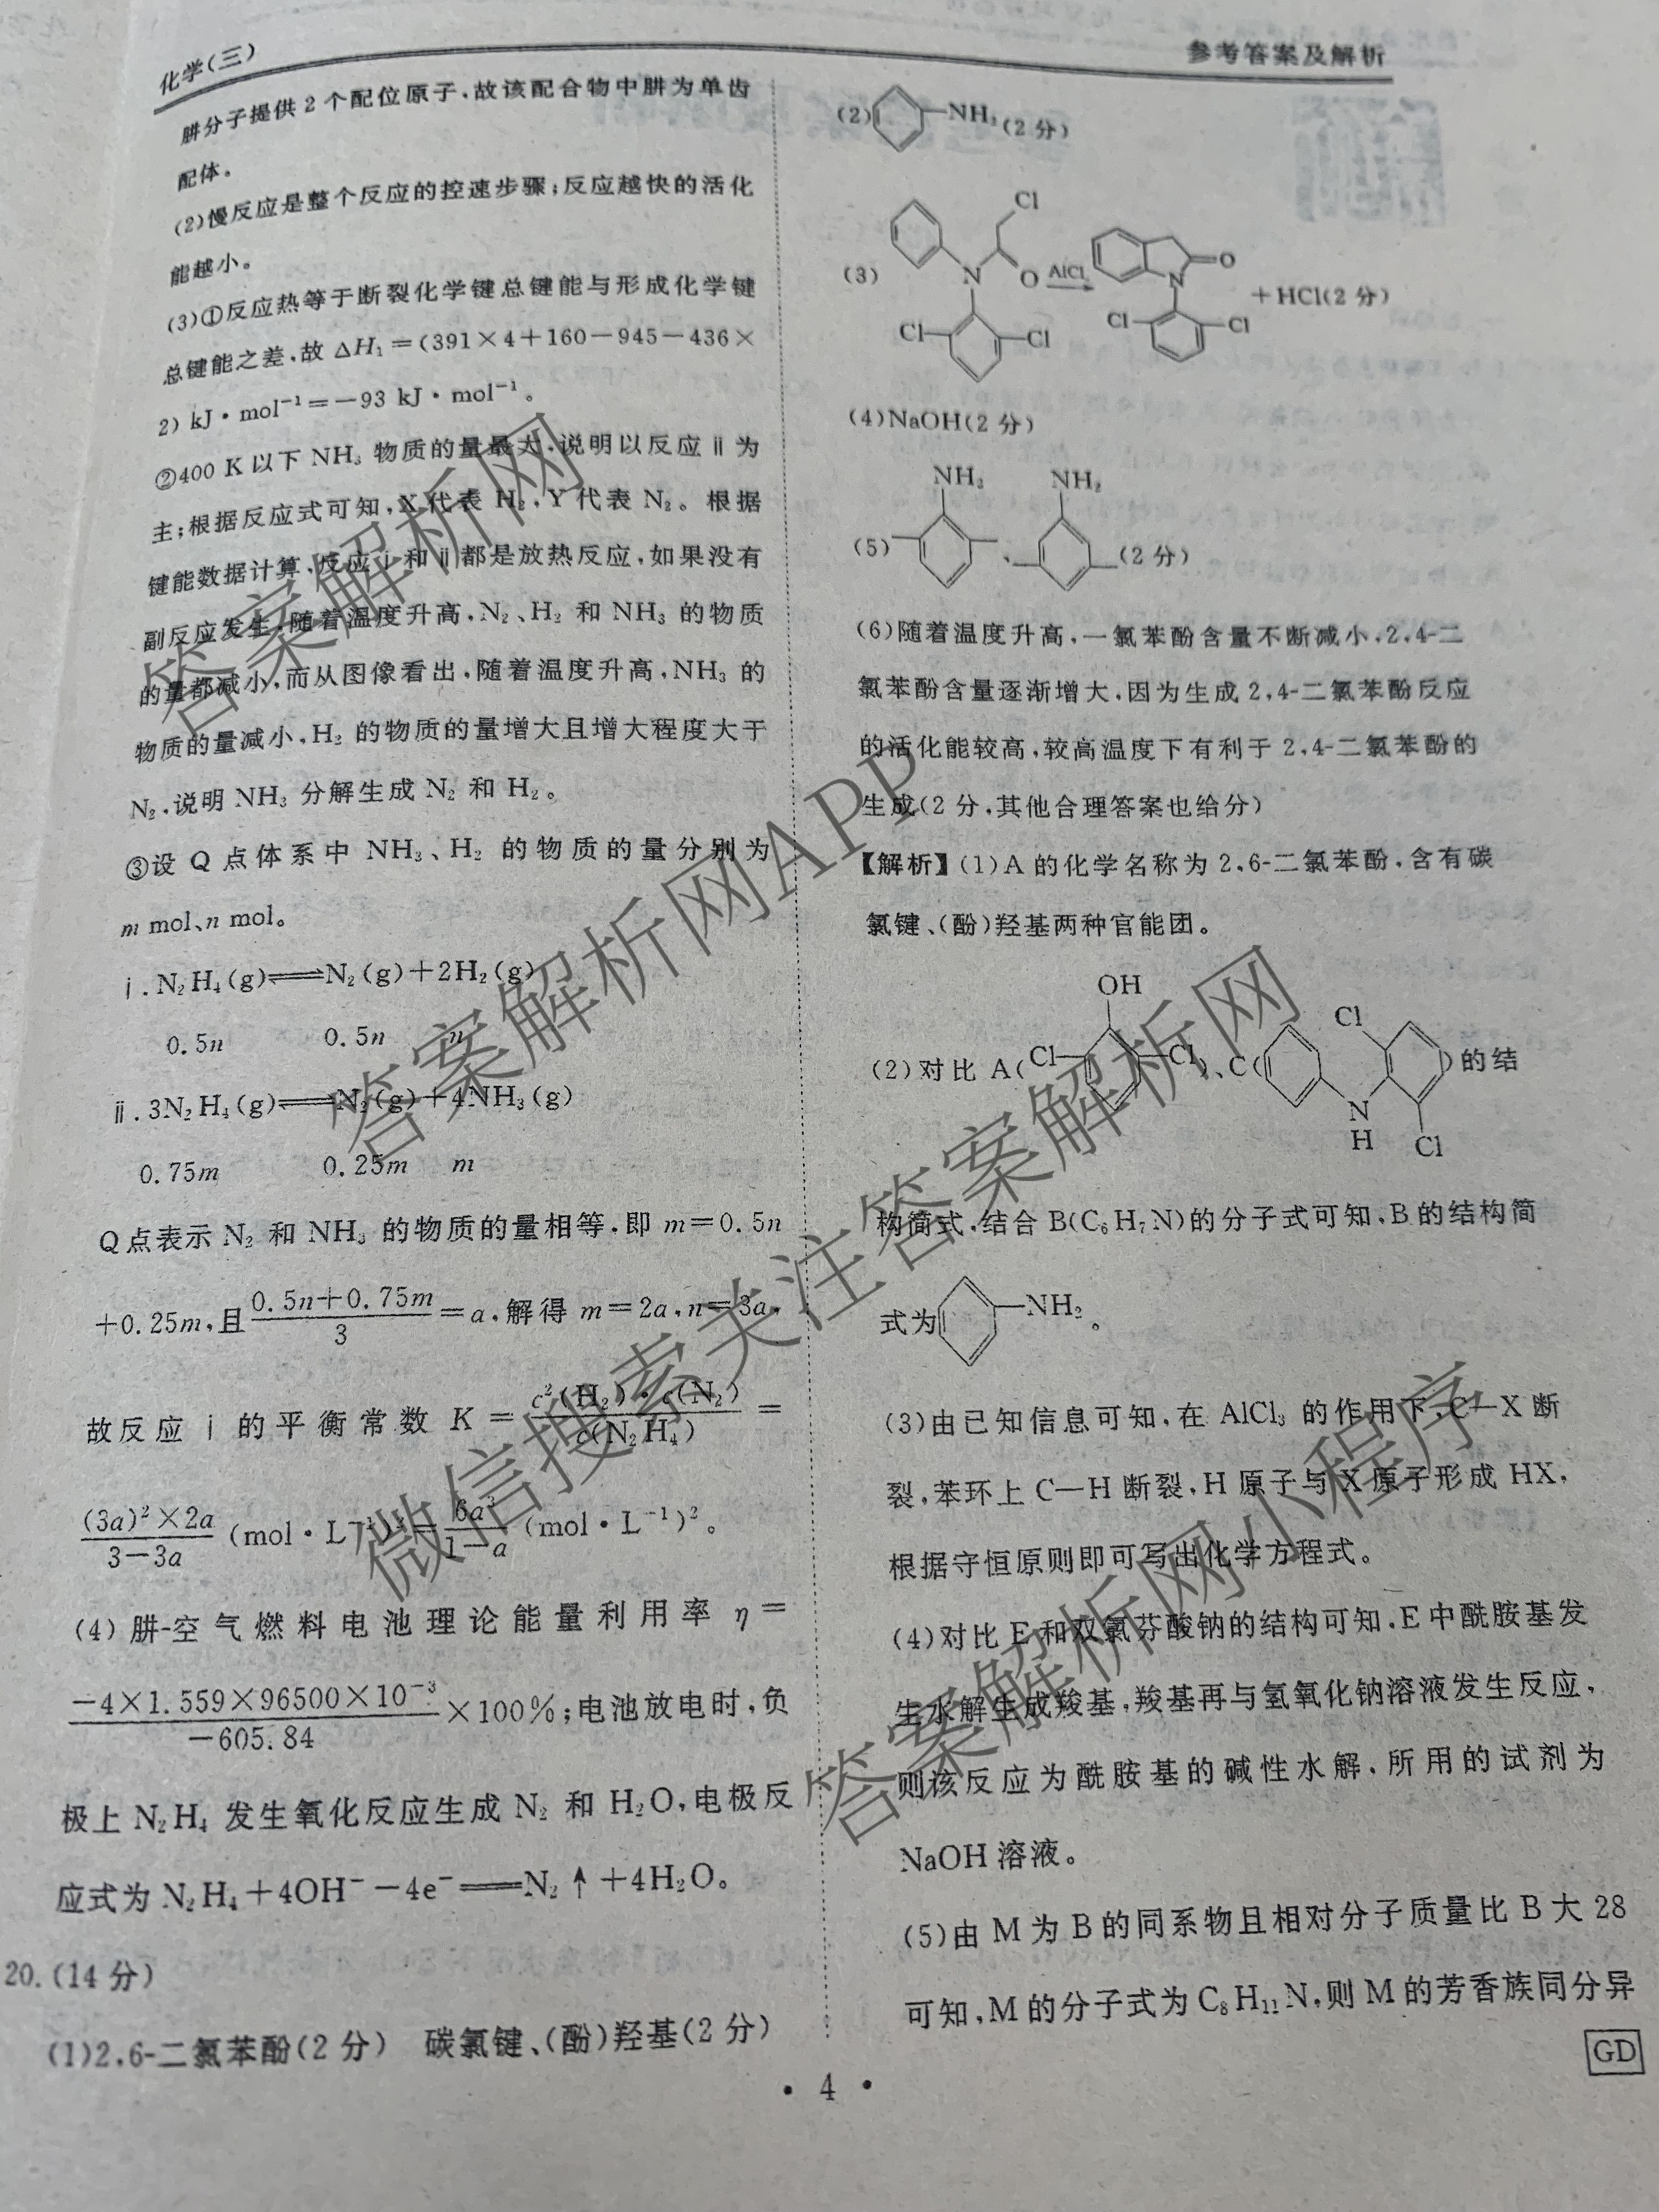 化学(三)
参考答案及解析
肼分子提供2个配位原子,故该配合物中肼为单齿
配体。
(2)慢反应是整个反应的控速步骤;反应越快的活化
能越小。
(3)①反应热等于断裂化学键总键能与形成化学键
总键能之差,故 ΔH₁=(391×4+160-945-436×
2) kJ·mol⁻¹=-93 kJ·mol⁻¹。
②400 K以下 NH₃ 物质的量最大,说明以反应ⅱ为
主;根据反应式可知,X代表 H₂,Y代表 N₂。根据
键能数据计算,反应ⅰ和ⅱ都是放热反应,如果没有
副反应发生,随着温度升高,N₂、H₂ 和 NH₃ 的物质
的量都减小,而从图像看出,随着温度升高,NH₃ 的
物质的量减小,H₂ 的物质的量增大且增大程度大于
N₂,说明 NH₃ 分解生成 N₂ 和 H₂。
③设 Q 点体系中 NH₃、H₂ 的物质的量分别为
m mol、n mol。
ⅰ.N₂H₄(g)⇌N₂(g)+2H₂(g)
0.5n 0.5n n
ⅱ.3N₂H₄(g)⇌N₂(g)+4NH₃(g)
0.75m 0.25m m
Q点表示 N₂ 和 NH₃ 的物质的量相等,即 m=0.5n
+0.25m,且(0.5n+0.75m)/3=a,解得 m=2a,n=3a,
故反应ⅰ的平衡常数 K=c²(H₂)·c(N₂)/c(N₂H₄)=
(3a)²×2a/(3-3a) (mol·L⁻¹)²=6a³/(1-a) (mol·L⁻¹)²。
(4)肼-空气燃料电池理论能量利用率 η=
(-4×1.559×96500×10⁻³)/(-605.84)×100%;电池放电时,负
极上 N₂H₄ 发生氧化反应生成 N₂ 和 H₂O,电极反
应式为 N₂H₄+4OH⁻-4e⁻═N₂↑+4H₂O。
20.(14分)
(1)2,6-二氯苯酚(2分) 碳氯键、(酚)羟基(2分)
(2) NH₂(2分)
(3) Cl N O Cl Cl AlCl₃ N O Cl Cl +HCl(2分)
(4)NaOH(2分)
(5) NH₂ 、 NH₂ (2分)
(6)随着温度升高,一氯苯酚含量不断减小,2,4-二
氯苯酚含量逐渐增大,因为生成2,4-二氯苯酚反应
的活化能较高,较高温度下有利于2,4-二氯苯酚的
生成(2分,其他合理答案也给分)
【解析】(1)A的化学名称为2,6-二氯苯酚,含有碳
氯键、(酚)羟基两种官能团。
(2)对比 A(Cl OH Cl)、C(Cl N H Cl)的结
构简式,结合 B(C₆H₇N)的分子式可知,B的结构简
式为 NH₂。
(3)由已知信息可知,在 AlCl₃ 的作用下,C—X断
裂,苯环上 C—H 断裂,H原子与X原子形成 HX,
根据守恒原则即可写出化学方程式。
(4)对比E和双氯芬酸钠的结构可知,E中酰胺基发
生水解生成羧基,羧基再与氢氧化钠溶液发生反应,
则该反应为酰胺基的碱性水解,所用的试剂为
NaOH 溶液。
(5)由 M 为 B 的同系物且相对分子质量比 B 大 28
可知,M的分子式为 C₈H₁₁N,则 M 的芳香族同分异
GD
· 4 ·
答案解析网
答案解析网APP
微信搜索关注答案解析网
答案解析网小程序